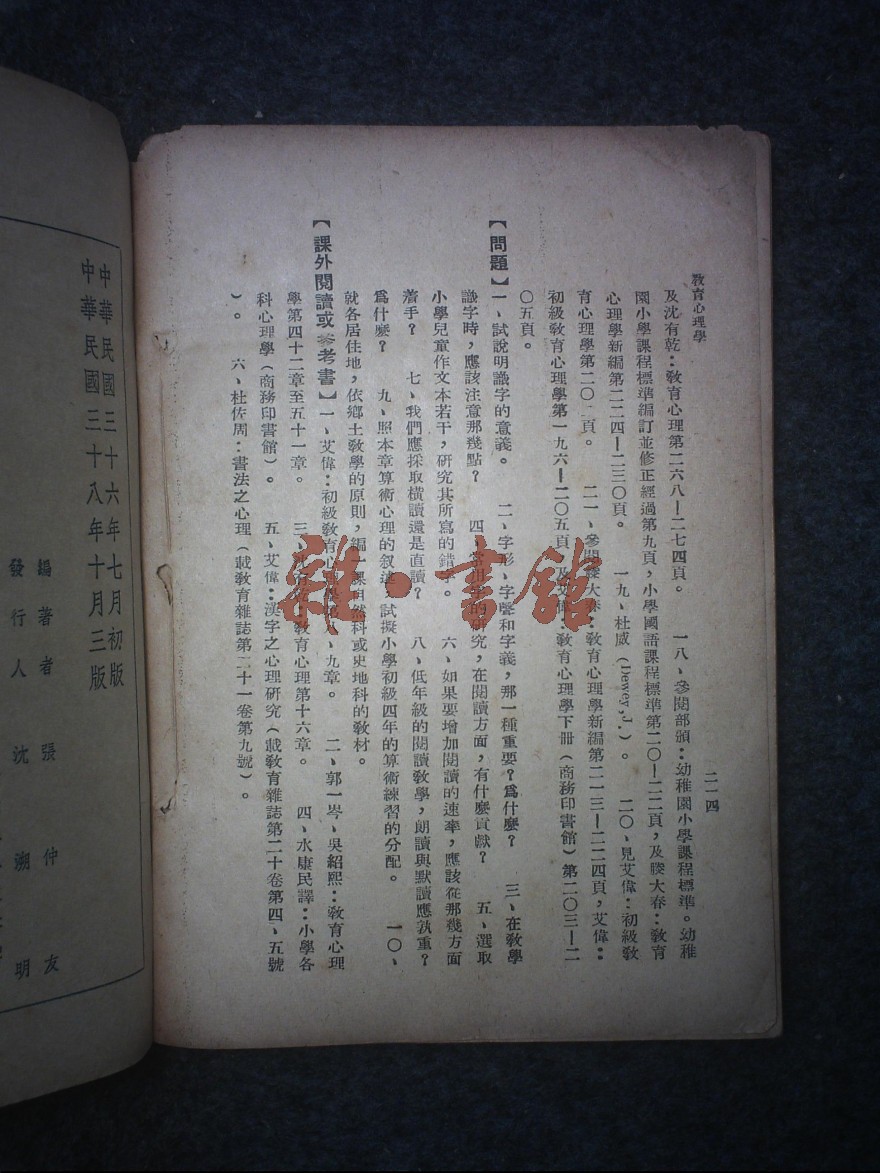 教育心理學
二一四
及沈有乾：教育心理第二六八—二七四頁。　一八、參閱部頒：幼稚園小學課程標準。幼稚
園小學課程標準編訂並修正經過第九頁，小學國語課程標準第二〇—二二頁，及騰大春：教育
心理學新編第二二四—二三〇頁。　一九、杜威（Dewey, J.）。　二〇、見艾偉：初級教
育心理學第二〇二頁。　二一、參閱騰大春：教育心理學新編第二一三—二二四頁，艾偉：
初級教育心理學第一九六—二〇五頁，及艾偉：教育心理學下冊（商務印書館）第二〇三—二
〇五頁。
【問題】一、試說明識字的意義。　二、字形、字聲和字義，那一種重要？爲什麼？　三、在教學
識字時，應該注意那幾點？　四、常用字的研究，在閱讀方面，有什麼貢獻？　五、選取
小學兒童作文本若干，研究其所寫的錯字。　六、如果要增加閱讀的速率，應該從那幾方面
着手？　七、我們應採取橫讀還是直讀？　八、低年級的閱讀教學，朗讀與默讀應孰重？
爲什麼？　九、照本章算術心理的叙述，試擬小學初級四年的算術練習的分配。　一〇、
就各居住地，依鄉土教學的原則，編一課自然科或史地科的教材。
【課外閱讀或參考書】一、艾偉：初級教育心理學第九章。　二、郭一岑、吳紹熙：教育心理
學第四十二章至五十一章。　三、沈有乾：教育心理第十六章。　四、水康民譯：小學各
科心理學（商務印書館）。　五、艾偉：漢字之心理研究（載教育雜誌第二十卷第四、五號
）。　六、杜佐周：書法之心理（載教育雜誌第二十一卷第九號）。
雜·書館
中華民國三十六年七月初版
中華民國三十八年十月三版
編著者　張仲友
發行人　沈溯明